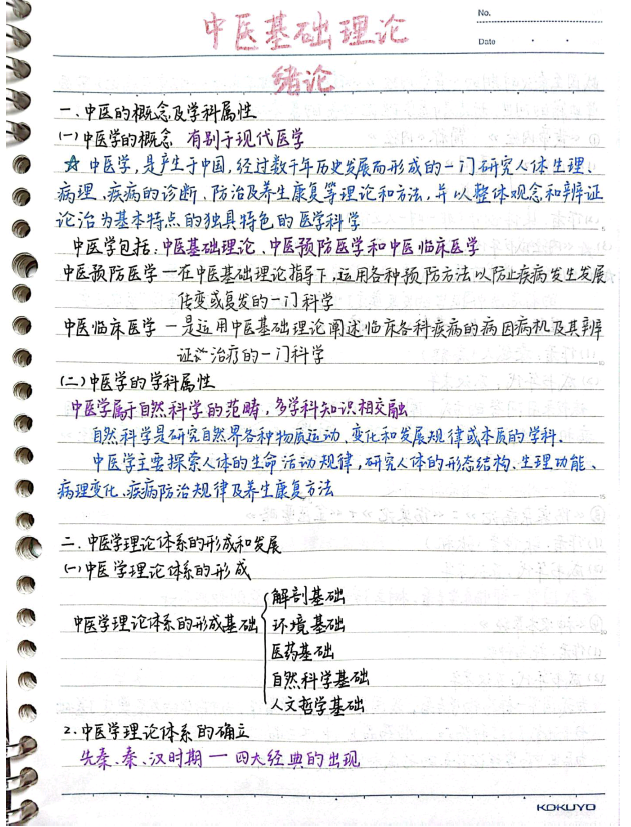 No.
Date
中医基础理论
绪论
一.中医的概念及学科属性
(一)中医学的概念 有别于现代医学
☆ 中医学,是产生于中国,经过数千年历史发展而形成的一门研究人体生理、
病理、疾病的诊断、防治及养生康复等理论和方法,并以整体观念和辨证
论治为基本特点的独具特色的医学科学
中医学包括:中医基础理论、中医预防医学和中医临床医学
中医预防医学—在中医基础理论指导下,运用各种预防方法以防止疾病发生发展
传变或复发的一门科学
中医临床医学—是运用中医基础理论阐述临床各科疾病的病因病机及其辨
证治疗的一门科学
(二)中医学的学科属性
中医学属于自然科学的范畴,多学科知识相交融
自然科学是研究自然界各种物质运动、变化和发展规律或本质的学科.
中医学主要探索人体的生命活动规律,研究人体的形态结构、生理功能、
病理变化、疾病防治规律及养生康复方法
二.中医学理论体系的形成和发展
(一)中医学理论体系的形成
解剖基础
中医学理论体系的形成基础 环境基础
医药基础
自然科学基础
人文哲学基础
2.中医学理论体系的确立
先秦、秦、汉时期—四大经典的出现
KOKUYO